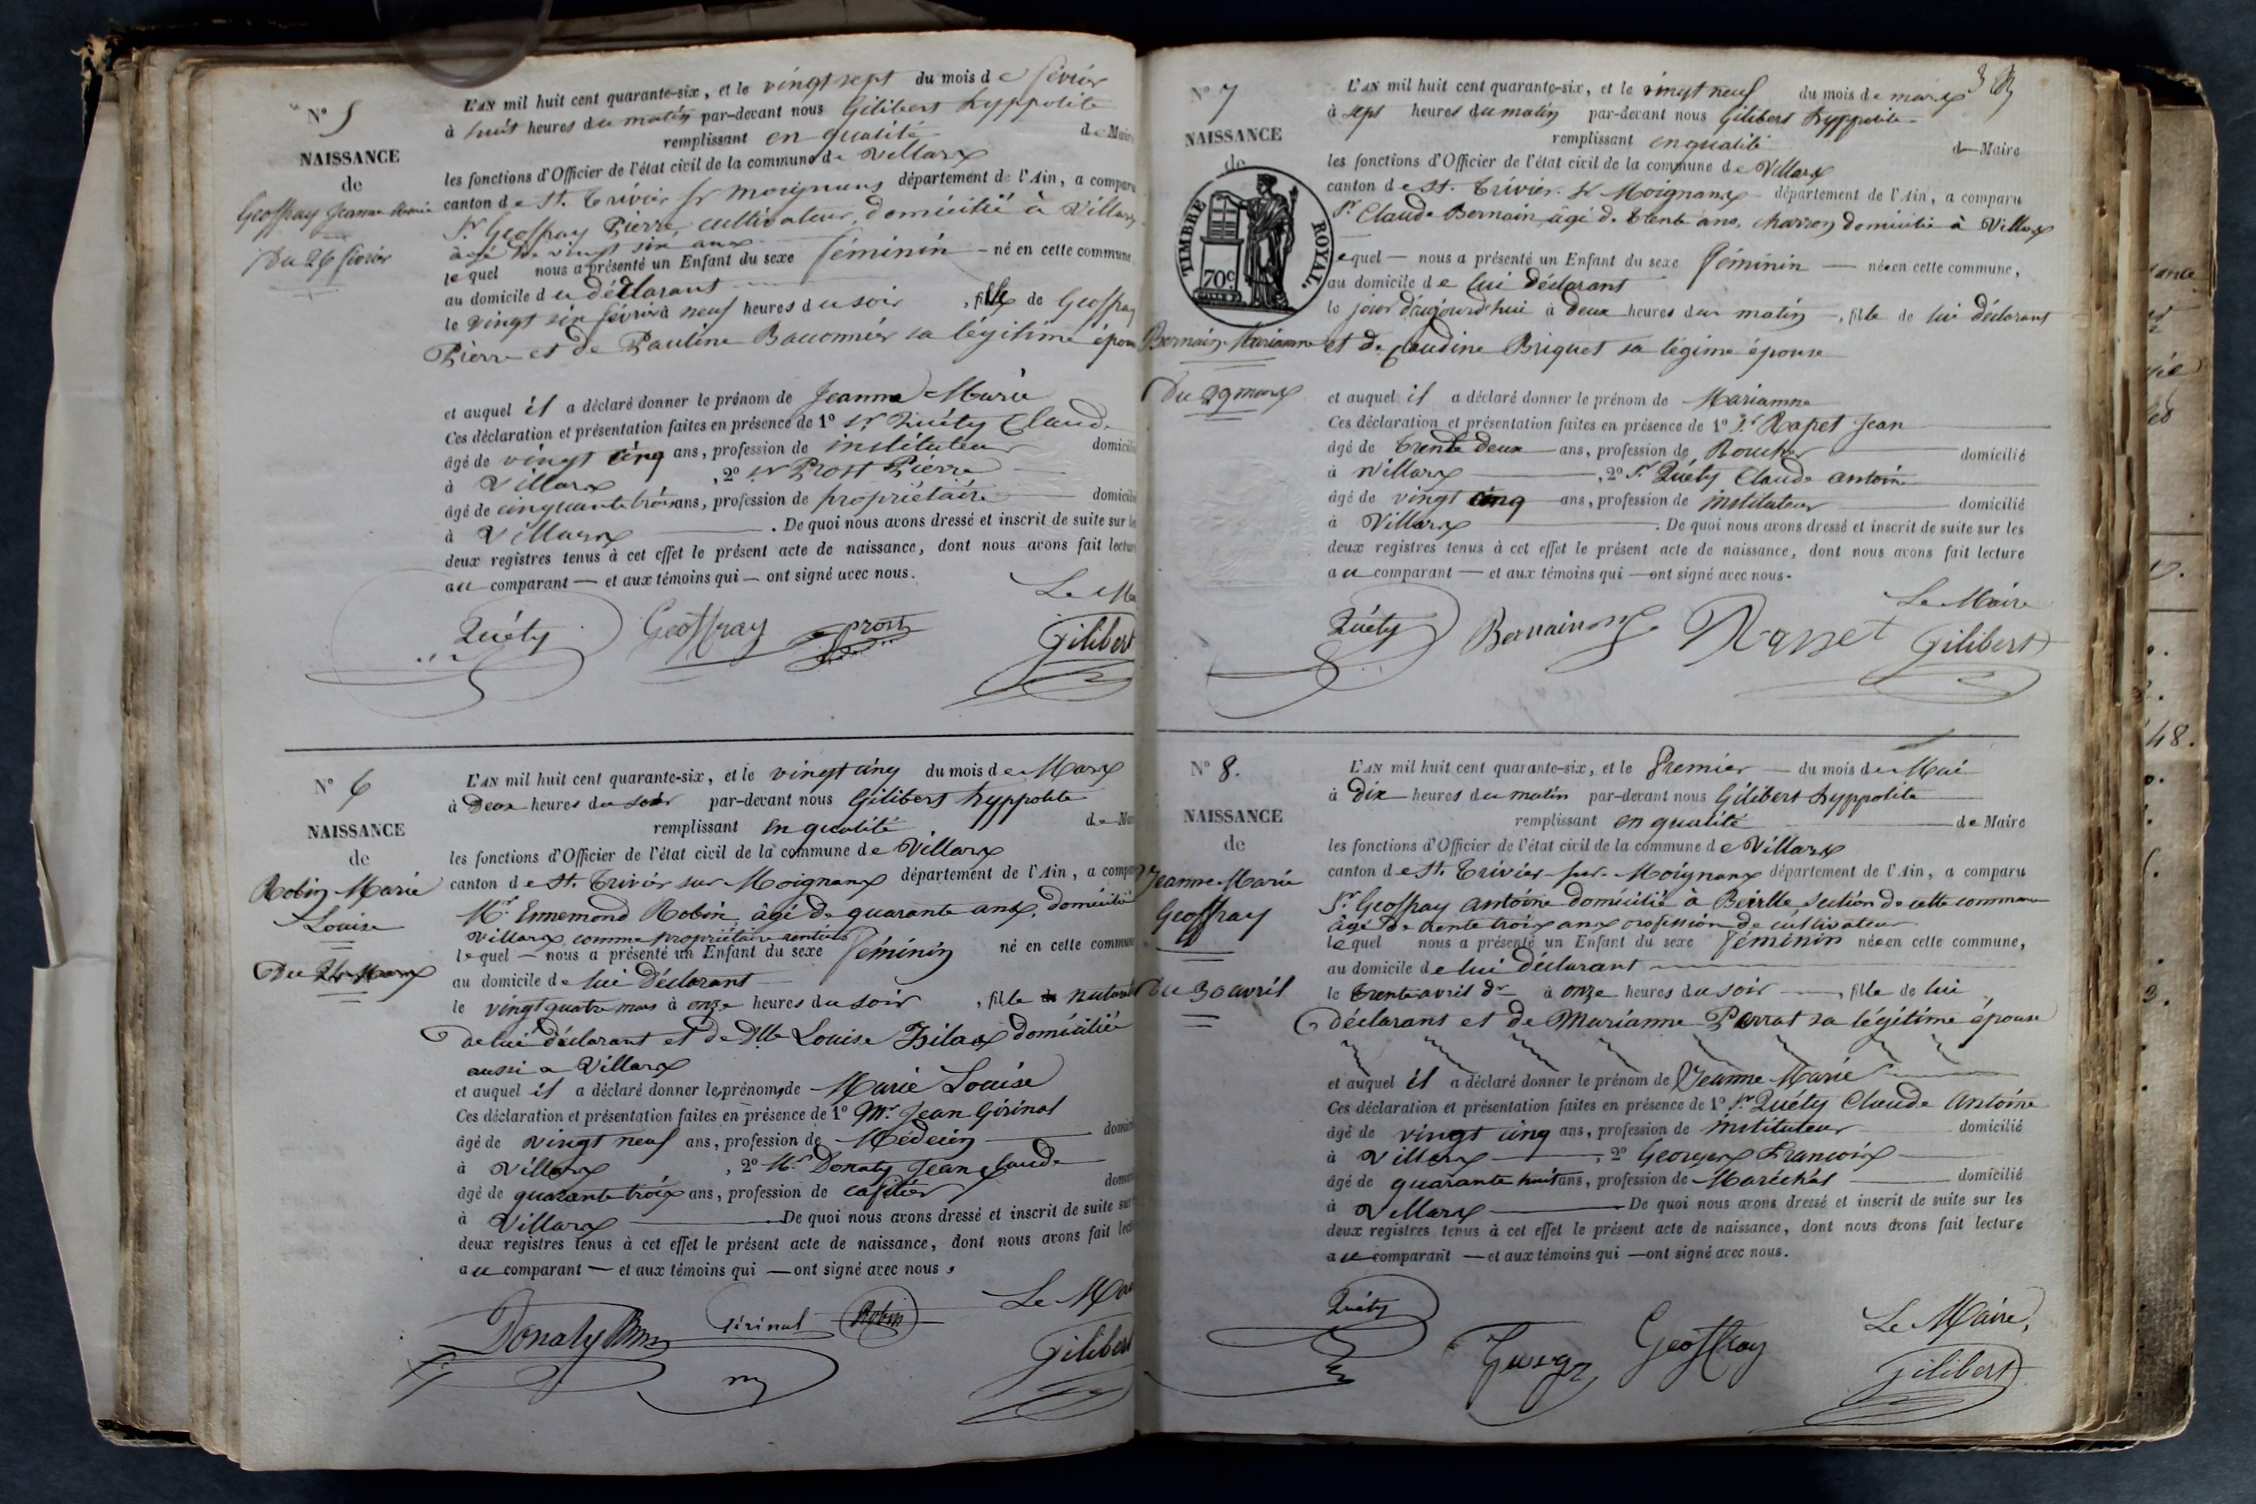 N° 5
NAISSANCE
de
Geoffray Jeanne Marie
Du 26 février
L'AN mil huit cent quarante-six, et le vingt sept du mois de février
à huit heures du matin par-devant nous Gilibert hyppolite
remplissant en qualité de Maire
les fonctions d'Officier de l'état civil de la commune de Villars
canton de St. Trivier sr moignans département de l'Ain, a comparu
Sr Geoffray Pierre, cultivateur, domicilié à Villars
âgé de vingt six ans
lequel nous a présenté un Enfant du sexe féminin né en cette commune
au domicile du déclarant
le vingt six février à neuf heures du soir, fille de Geoffray
Pierre et de Pauline Baconnier sa légitime épouse
et auquel il a déclaré donner le prénom de Jeanne Marie
Ces déclaration et présentation faites en présence de 1° sr Quéty Claude
âgé de vingt cinq ans, profession de instituteur domicilié
à Villars, 2° sr Prost Pierre
âgé de cinquante trois ans, profession de propriétaire domicilié
à Villars. De quoi nous avons dressé et inscrit de suite sur les
deux registres tenus à cet effet le présent acte de naissance, dont nous avons fait lecture
au comparant et aux témoins qui ont signé avec nous.
Le Ma
Quéty Geoffray prost Gilibert
N° 6
NAISSANCE
de
Robin Marie
Louise
Du 24 Mars
L'AN mil huit cent quarante-six, et le vingt cinq du mois de Mars
à Deux heures du soir par-devant nous Gilibert hyppolite
remplissant en qualité de Mai
les fonctions d'Officier de l'état civil de la commune de Villars
canton de St. Trivier sur Moignans département de l'Ain, a compa
Mr. Ennemond Robin âgé de quarante ans, domicilié
Villars comme propriétaire rentier
lequel nous a présenté un Enfant du sexe féminin né en cette commune
au domicile de lui déclarant
le vingt quatre mars à onze heures du soir, fille naturelle
de lui déclarant et de Dlle Louise domiciliée
aussi a Villars
et auquel il a déclaré donner les prénoms de Marie Louise
Ces déclaration et présentation faites en présence de 1° Mr. Jean Girinal
âgé de vingt neuf ans, profession de Médecin domicilié
à Villars, 2° Mr Donaty Jean Claude
âgé de quarante trois ans, profession de cafetier domicilié
à Villars De quoi nous avons dressé et inscrit de suite sur
deux registres tenus à cet effet le présent acte de naissance, dont nous avons fait lect
au comparant et aux témoins qui ont signé avec nous.
Le Mai
Donaty Girinal Robin Gilibert
N° 7
NAISSANCE
de
TIMBRE ROYAL.
70c
Bernain Marianne
Du 29 mars
L'AN mil huit cent quarante-six, et le vingt neuf du mois de mars
à sept heures du matin par-devant nous Gilibert hyppolite
remplissant en qualité de Maire
les fonctions d'Officier de l'état civil de la commune de Villars
canton de St. Trivier sr Moignans département de l'Ain, a comparu
Sr. Claude Bernain, âgé de trente ans, charron domicilié à Villars
lequel nous a présenté un Enfant du sexe féminin née en cette commune,
au domicile de lui déclarant
le jour d'aujourd'hui à deux heures du matin, fille de lui déclarant
et de Claudine Briquet sa légime épouse
et auquel il a déclaré donner le prénom de Marianne
Ces déclaration et présentation faites en présence de 1° Sr Rapet Jean
âgé de trente deux ans, profession de Boucher domicilié
à Villars, 2° Sr Quéty Claude antoine
âgé de vingt cinq ans, profession de instituteur domicilié
à Villars. De quoi nous avons dressé et inscrit de suite sur les
deux registres tenus à cet effet le présent acte de naissance, dont nous avons fait lecture
au comparant et aux témoins qui ont signé avec nous.
Le Maire
Quéty Bernain Rapet Gilibert
N° 8.
NAISSANCE
de
Jeanne Marie
Geoffray
Du 30 avril
L'AN mil huit cent quarante-six, et le Premier du mois de Mai
à Dix heures du matin par-devant nous Gilibert hyppolite
remplissant en qualité de Maire
les fonctions d'Officier de l'état civil de la commune de Villars
canton de St. Trivier sur Moignans département de l'Ain, a comparu
Sr Geoffray antoine domicilié à section de cette commune
âgé de trente trois ans profession de cultivateur
lequel nous a présenté un Enfant du sexe féminin née en cette commune,
au domicile de lui déclarant
le trente avril dr à onze heures du soir, fille de lui
déclarant et de Marianne Perrat sa légitime épouse
et auquel il a déclaré donner le prénom de Jeanne Marie
Ces déclaration et présentation faites en présence de 1° Sr Quéty Claude Antoine
âgé de vingt cinq ans, profession de instituteur domicilié
à Villars, 2° Georges François
âgé de quarante huit ans, profession de Maréchal domicilié
à Villars De quoi nous avons dressé et inscrit de suite sur les
deux registres tenus à cet effet le présent acte de naissance, dont nous avons fait lecture
au comparant et aux témoins qui ont signé avec nous.
Quéty Geoffray Le Maire,
Gilibert